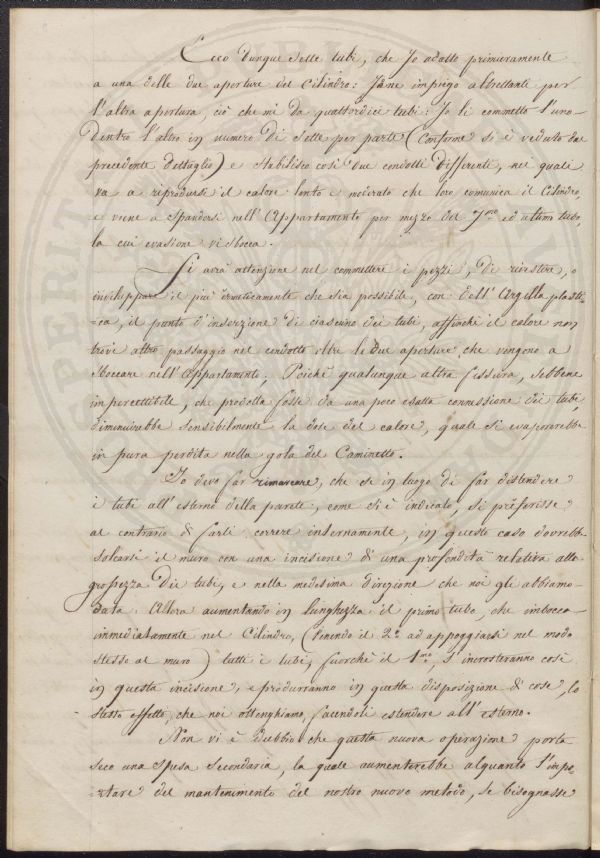 Ecco dunque sette tubi, che Io adatto primieramente
a una delle due aperture del Cilindro: Jane impiego altrettanti per
l'altra apertura, ciò che mi da quattordici tubi: Io li commetto l'uno
dentro l'altro in numero di sette per parte (Conforme si è veduto dal
precedente dettaglio) e stabilisco così due condotti differenti, nei quali
va a riprodursi il calore lento e moderato che loro comunica il Cilindro,
e viene a spandersi nell'Appartamento per mezzo del 7mo ed ultimo tubo,
la cui evasione vi sbocca.
Si avrà attenzione nel commettere i pezzi, di rivestire, o
inviluppare il più ermeticamente che sia possibile, con dell'Argilla plasti-
=ca, il punto d'inserzione di ciascuno dei tubi, affinchè il calore non
trovi altro passaggio nel condotto oltre le due aperture, che vengono a
sboccare nell'Appartamento, Poichè qualunque altra fessura, sebbene
impercettibile, che prodotta fosse da una poco esatta connessione dei tubi,
diminuirebbe sensibilmente la dose del calore, quale si evaporerebbe
in pura perdita nella gola del Caminetto.
Io devo far rimarcare, che se in luogo di far distendere
i tubi all'esterno della parete, come si è indicato, si preferisse
al contrario di farli correre internamente, in questo caso dovrebb
solcarsi il muro con una incisione di una profondità relativa alla
grossezza dei tubi, e nella medesima direzione che noi gli abbiamo
data. Allora aumentando in lunghezza il primo tubo, che imbocca
immediatamente nel Cilindro, (venendo il 2o ad appoggiarsi nel modo
stesso al muro) tutti i tubi, fuorchè il 1mo, s'incrosteranno così
in questa incisione, e produrranno in questa disposizione di cose, lo
stesso effetto, che noi otteghiamo, facendoli estendere all'esterno.
Non vi è dubbio che questa nuova operazione porta
seco una spesa secondaria, la quale aumenterebbe alquanto l'impo-
=rtare del mantenimento del nostro nuovo metodo, se bisognasse